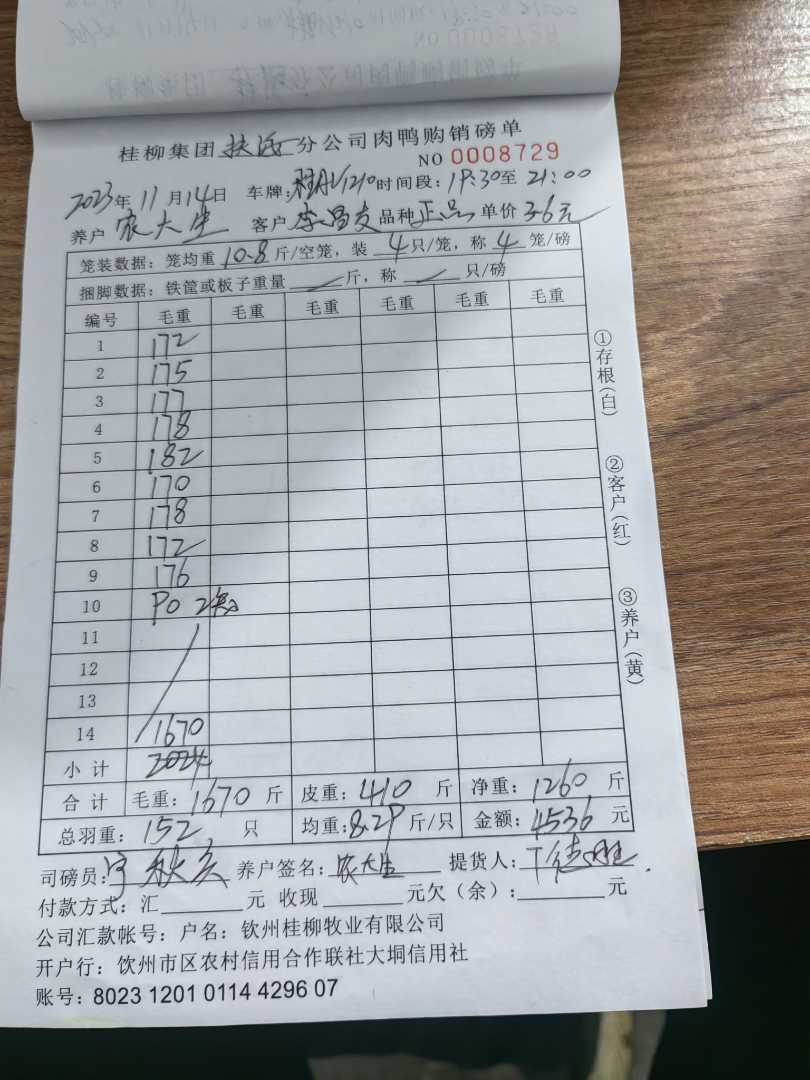 桂柳集团 扶 分公司肉鸭购销磅单
NO 0008729
2023年11月14日 车牌: 桂AV1210 时间段: 19:30至21:00
养户 农大生 客户 李昌友 品种 正品 单价 3.6元
笼装数据: 笼均重 10.8 斤/空笼, 装 4 只/笼, 称 4 笼/磅
捆脚数据: 铁筐或板子重量 斤, 称 只/磅
编号 毛重 毛重 毛重 毛重 毛重 毛重
1 172
2 175
3 177
4 178
5 182
6 170
7 178
8 172
9 176
10 90 2
11
12
13
14 1670
小计
合计 毛重: 1670 斤 皮重: 410 斤 净重: 1260 斤
总羽重: 152 只 均重: 8.29 斤/只 金额: 4536 元
司磅员: 养户签名: 农大生 提货人:
付款方式: 汇 元 收现 元欠(余): 元
公司汇款帐号: 户名: 钦州桂柳牧业有限公司
开户行: 饮州市区农村信用合作联社大垌信用社
账号: 8023 1201 0114 4296 07
①存根(白)
②客户(红)
③养户(黄)